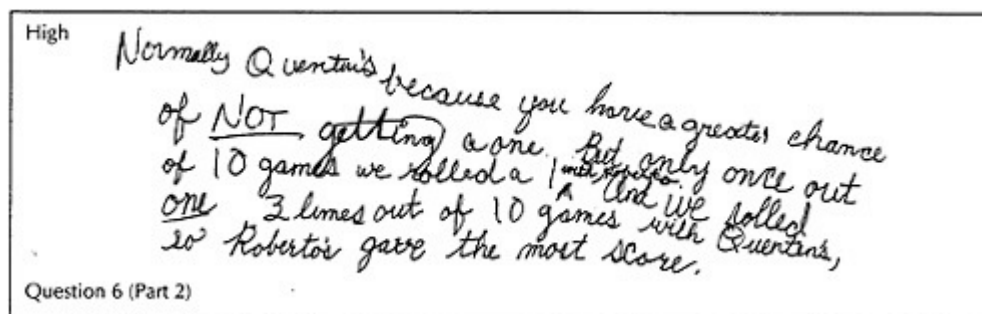 High
Normally Quentin's because you have a greater chance
of NOT getting a one. But only once out
of 10 games we rolled a 1 with Roberto's. And we rolled
one 3 times out of 10 games with Quentin's,
so Roberto's gave the most score.
Question 6 (Part 2)